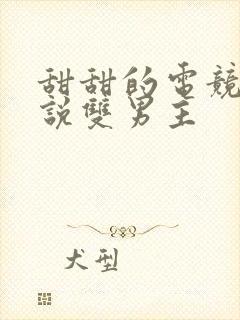 甜甜的電競
說雙男主
犬型